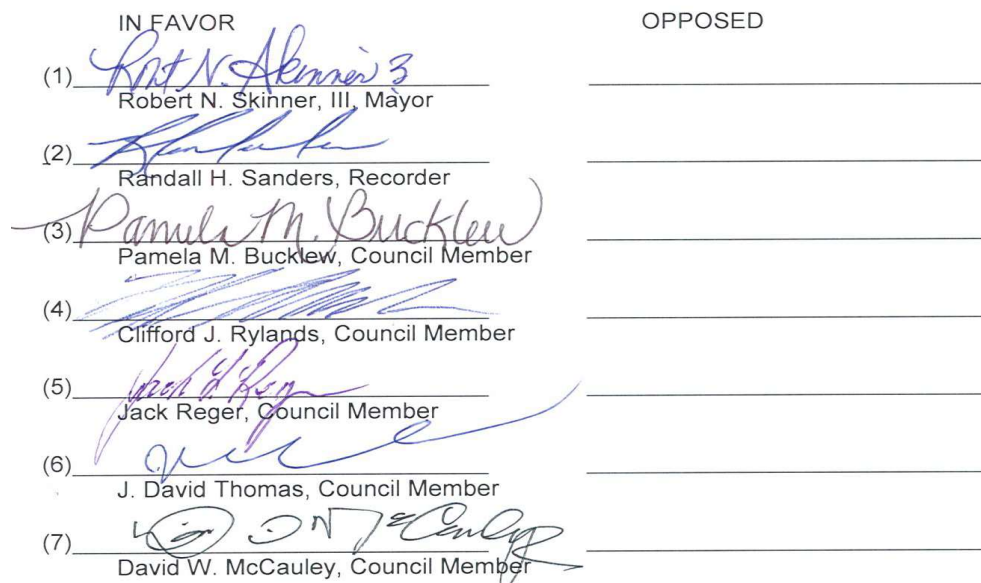 IN FAVOR OPPOSED
(1) Robt N. Skinner 3
Robert N. Skinner, III, Mayor
(2)
Randall H. Sanders, Recorder
(3) Pamela M. Bucklew
Pamela M. Bucklew, Council Member
(4)
Clifford J. Rylands, Council Member
(5)
Jack Reger, Council Member
(6)
J. David Thomas, Council Member
(7) McCauley
David W. McCauley, Council Member